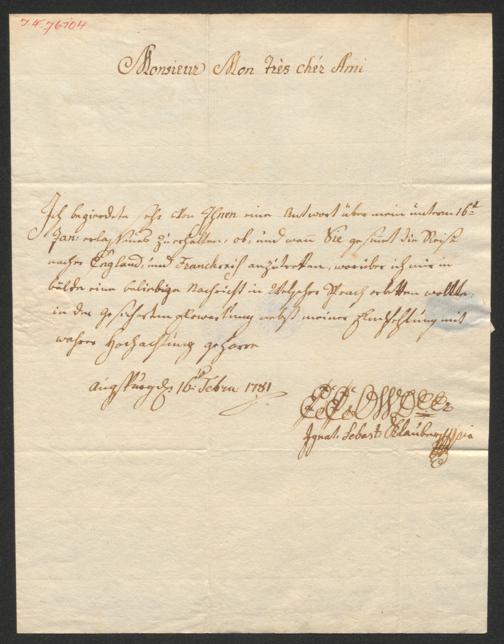 J.N. 76104
Monsieur Mon très chér Ami
Ich begierdete sehr von Ihnen eine Antwort über mein unterm 16.t
Jan: erlassenes zu erhalten, ob, und wann Sie gesinnt die Reise
nacher England, und Franckreich anzutretten, worüber ich mir in
bälde eine beliebige Nachricht in Welscher Sprach erbetten wollte,
in der gesicherten Erwartung nebst meiner Empfehlung mit
wahrer Hochachtung geharre
Augspurg d 16. Febru 1781
Ignat: Sebast: Klauber